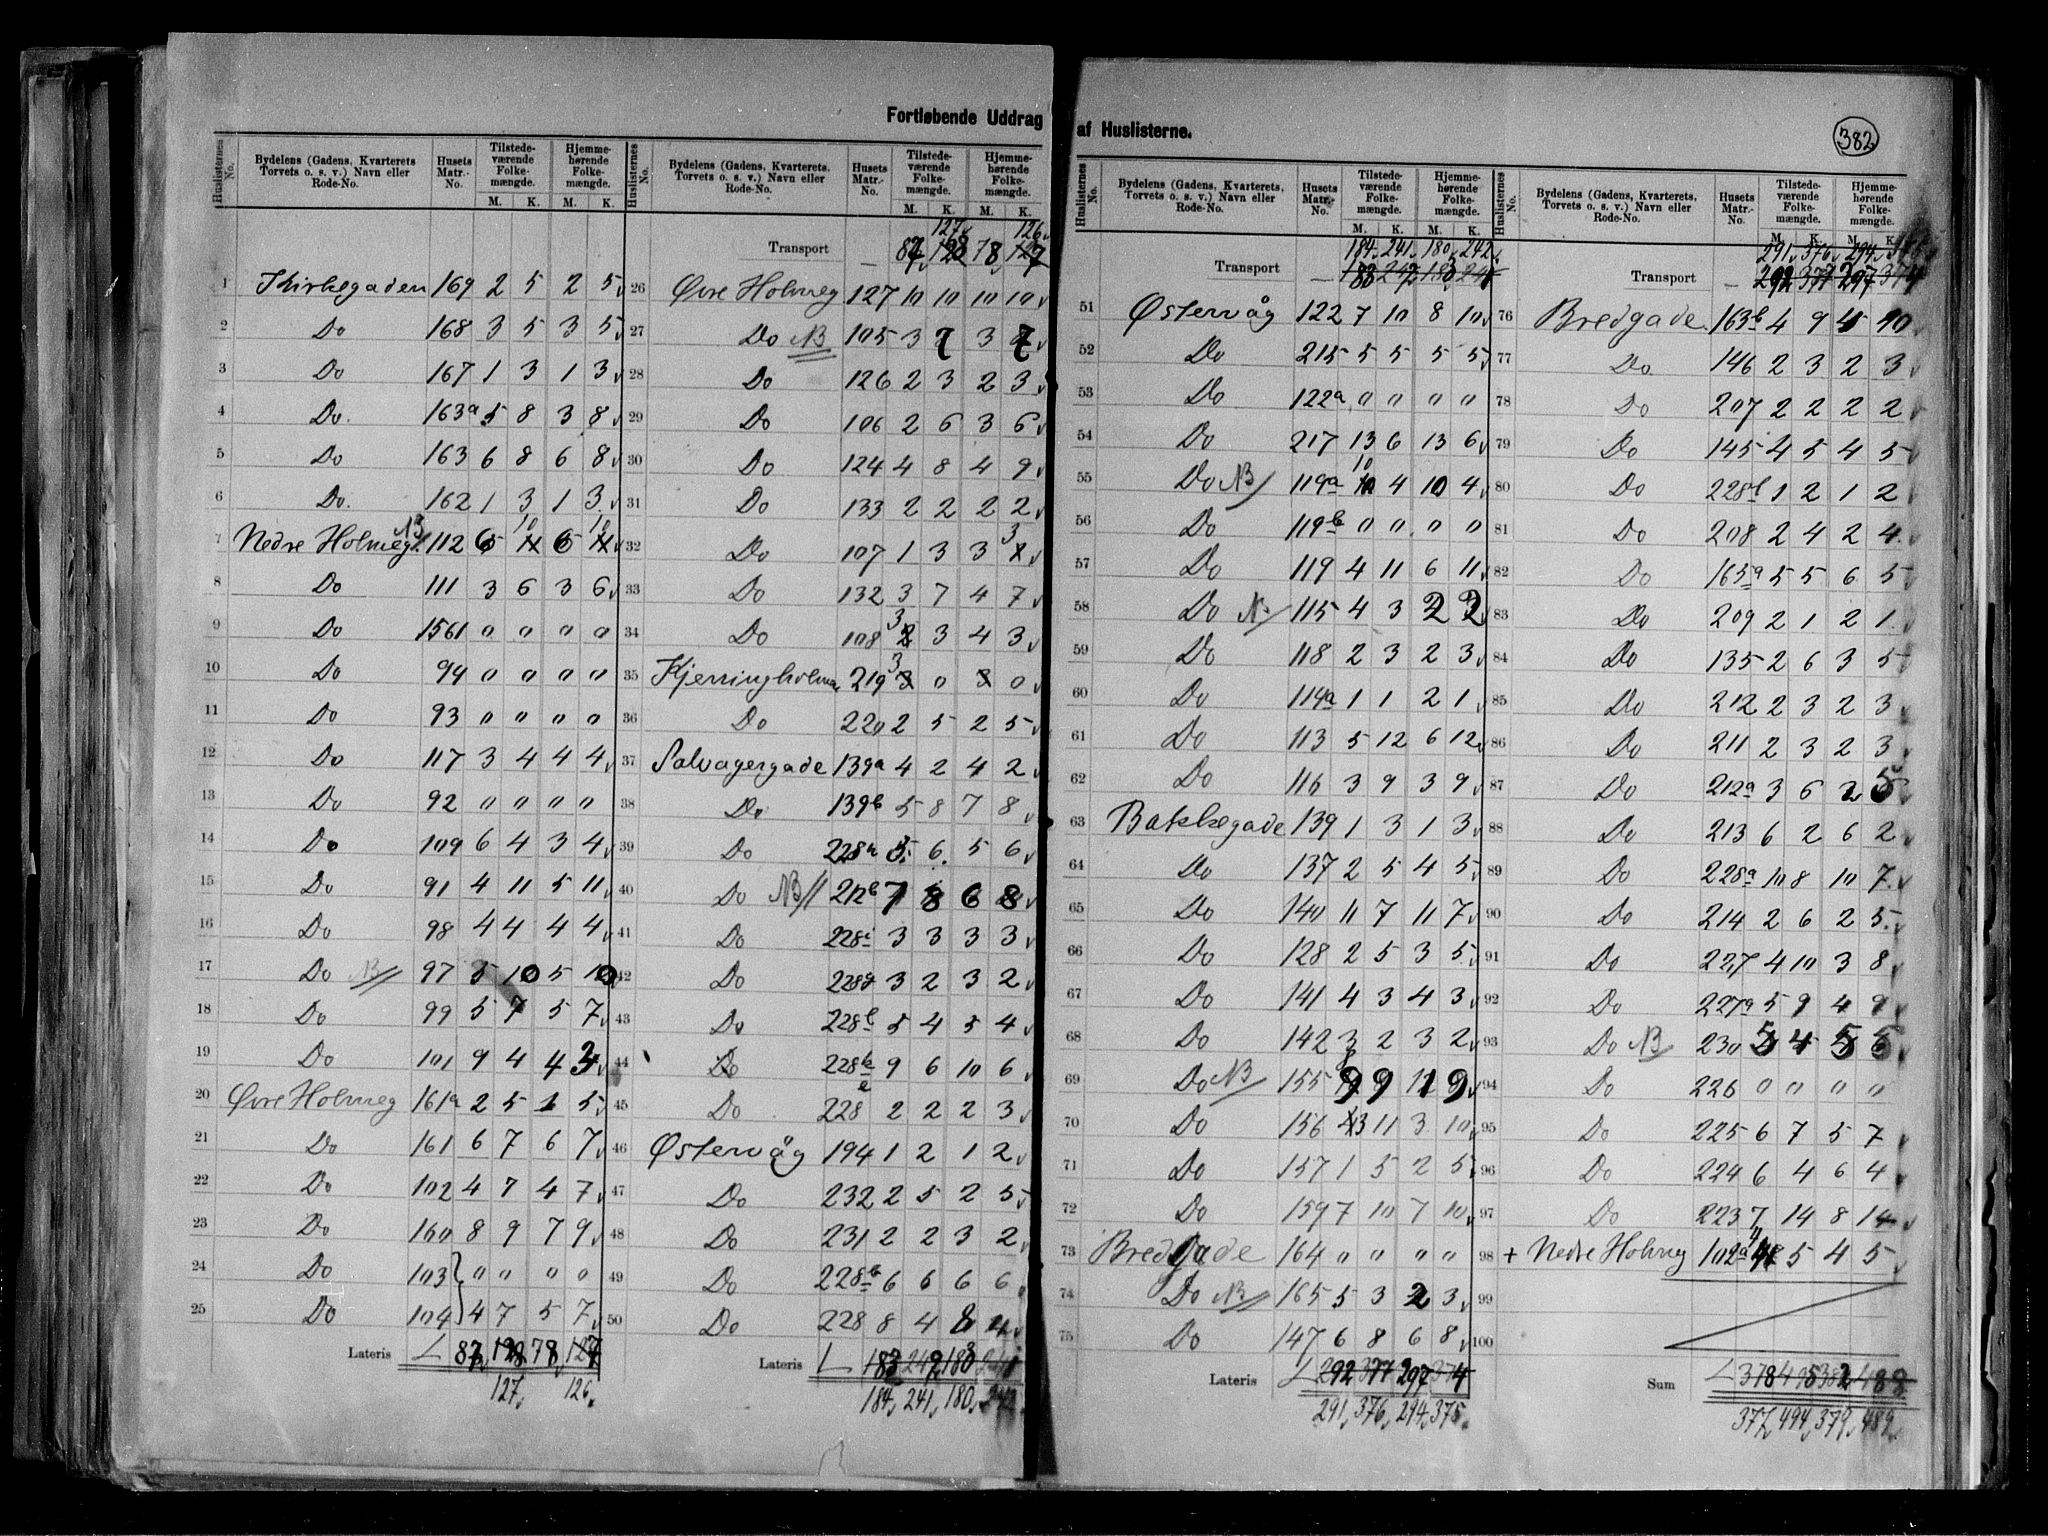 Fortløbende Uddrag af Huslisterne.
382
Huslisternes No. Bydelens (Gadens, Kvarterets Torvets o. s. v.) Navn eller Rode-No. Husets Matr.-No. Tilstedeværende Folkemængde. M. K. Hjemmehørende Folkemængde. M. K.
1 Kirkegaden 169 2 5 2 5
2 Do 168 3 5 3 5
3 Do 167 1 3 1 3
4 Do. 163a 5 8 3 8
5 Do 163 6 8 6 8
6 Do. 162 1 3 1 3
7 Nedre Holmeg. NB 112 6 10 6 10
8 Do 111 3 6 3 6
9 Do 1561 0 0 0 0
10 Do 94 0 0 0 0
11 Do 93 0 0 0 0
12 Do 117 3 4 4 4
13 Do 92 0 0 0 0
14 Do 109 6 4 3 4
15 Do 91 4 11 5 11
16 Do 98 4 4 4 4
17 Do NB 97 5 10 5 10
18 Do 99 5 7 5 7
19 Do 101 9 4 4 3
20 Øvre Holmeg 161a 2 5 1 5
21 Do 161 6 7 6 7
22 Do 102 4 7 4 7
23 Do 160 8 9 7 9
24 Do 103 0 0 0 0
25 Do 104 4 7 5 7
Lateris 87 128 78 127
127 126
Huslisternes No. Bydelens (Gadens, Kvarterets, Torvets o. s. v.) Navn eller Rode-No. Husets Matr.-No. Tilstedeværende Folkemængde. M. K. Hjemmehørende Folkemængde. M. K.
127 126
Transport 87 128 78 127
26 Øvre Holmeg 127 10 10 10 10
27 Do NB 105 3 7 3 7
28 Do 126 2 3 2 3
29 Do 106 2 6 3 6
30 Do 124 4 8 4 9
31 Do 133 2 2 2 2
32 Do 107 1 3 3 3
33 Do 132 3 7 4 7
34 Do 108 3 3 4 3
35 Kjerringholmen 219 3 0 3 0
36 Do 220 2 5 2 5
37 Salvagergade 139a 4 2 4 2
38 Do 139b 5 8 7 8
39 Do 228h 5 6 5 6
40 Do NB 212b 7 8 6 8
41 Do 228i 3 3 3 3
42 Do 228g 3 2 3 2
43 Do 228f 5 4 5 4
44 Do 228k 9 6 10 6
45 Do 228e 2 2 2 3
46 Østervåg 194 1 2 1 2
47 Do 232 2 5 2 5
48 Do 231 2 2 3 2
49 Do 228b 6 6 6 6
50 Do 228 8 4 8 4
Lateris 183 242 183 241
184 241 180 242
Huslisternes No. Bydelens (Gadens, Kvarterets, Torvets o. s. v.) Navn eller Rode-No. Husets Matr.-No. Tilstedeværende Folkemængde. M. K. Hjemmehørende Folkemængde. M. K.
184 241 180 242
Transport 183 242 183 241
51 Østervåg 122 7 10 8 10
52 Do 215 5 5 5 5
53 Do 122a 0 0 0 0
54 Do 217 13 6 13 6
55 Do NB 119a 10 4 10 4
56 Do 119b 0 0 0 0
57 Do 119 4 11 6 11
58 Do N 115 4 3 2 2
59 Do 118 2 3 2 3
60 Do 114a 1 1 2 1
61 Do 113 5 12 6 12
62 Do 116 3 9 3 9
63 Bakkegade 139 1 3 1 3
64 Do 137 2 5 4 5
65 Do 140 11 7 11 7
66 Do 128 2 5 3 5
67 Do 141 4 3 4 3
68 Do 142 3 2 3 2
69 Do NB 155 9 9
70 Do 156 3 11 3 10
71 Do 157 1 5 2 5
72 Do 159 7 10 7 10
73 Bredgade 164 0 0 0 0
74 Do NB 165 5 3 2 3
75 Do 147 6 8 6 8
Lateris 292 377 297 374
291 376 294 375
Huslisternes No. Bydelens (Gadens, Kvarterets, Torvets o. s. v.) Navn eller Rode-No. Husets Matr.-No. Tilstedeværende Folkemængde. M. K. Hjemmehørende Folkemængde. M. K.
291 376 294 375
Transport 292 377 297 374
76 Bredgade 163b 4 9 4 10
77 Do 146 2 3 2 3
78 Do 207 2 2 2 2
79 Do 145 4 5 4 5
80 Do 228l 1 2 1 2
81 Do 208 2 4 2 4
82 Do 165a 5 5 6 5
83 Do 209 2 1 2 1
84 Do 135 2 6 3 5
85 Do 212 2 3 2 3
86 Do 211 2 3 2 3
87 Do 212a 3 6 2 5
88 Do 213 6 2 6 2
89 Do 228a 10 8 10 7
90 Do 214 2 6 2 5
91 Do 227 4 10 3 8
92 Do 227a 5 9 4 9
93 Do NB 230 5 4 5 5
94 Do 226 0 0 0 0
95 Do 225 6 7 5 7
96 Do 224 6 4 6 4
97 Do 223 7 14 8 14
98 + Nedre Holmeg 102a 4 5 4 5
99
100
Sum 378 495 382 488
377 494 379 489